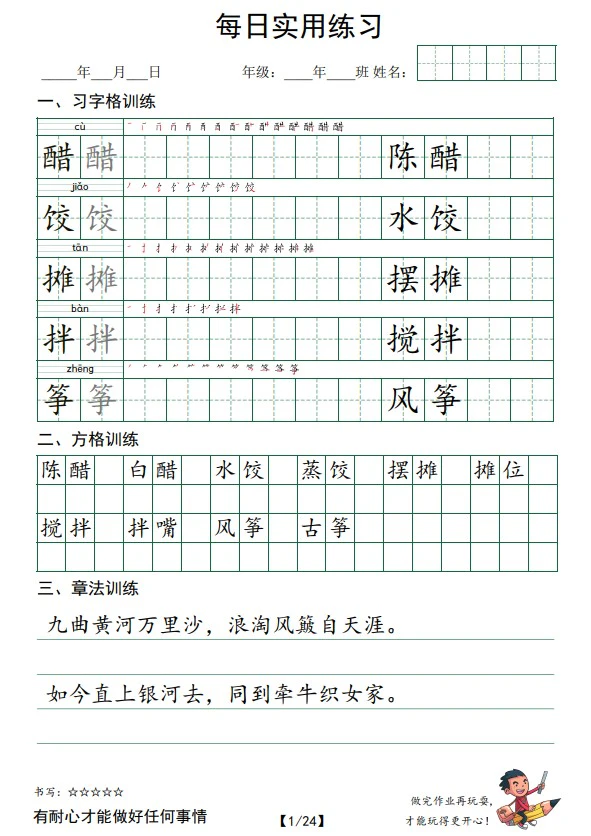 每日实用练习
_____年___月___日 年级：____年____班 姓名：
一、习字格训练
cù
醋 醋 陈 醋
jiǎo
饺 饺 水 饺
tān
摊 摊 摆 摊
bàn
拌 拌 搅 拌
zhēng
筝 筝 风 筝
二、方格训练
陈醋 白醋 水饺 蒸饺 摆摊 摊位
搅拌 拌嘴 风筝 古筝
三、章法训练
九曲黄河万里沙，浪淘风簸自天涯。
如今直上银河去，同到牵牛织女家。
书写：☆☆☆☆☆
有耐心才能做好任何事情
【1/24】
做完作业再玩耍，
才能玩得更开心！